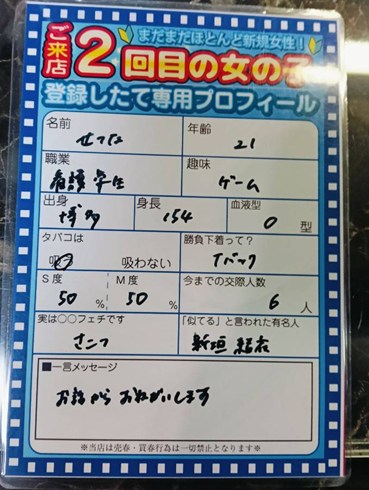 まだまだほとんど新規女性！
ご来店2回目の女の子
登録したて専用プロフィール
名前 せつな
年齢 21
職業 看護学生
趣味 ゲーム
出身 博多
身長 154
血液型 O 型
タバコは 吸う 吸わない
勝負下着って？ Tバック
S度 50 %
M度 50 %
今までの交際人数 6 人
実は○○フェチです
「似てる」と言われた有名人 新垣 結衣
■一言メッセージ
お話から おねがいします
※当店は売春・買春行為は一切禁止となります※